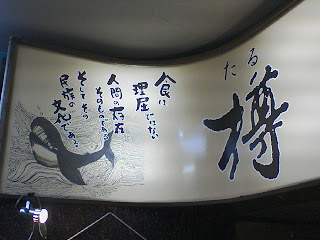 たる
樽
食は
理屈ではない
人間の存在
そのものであり
そしてその
民族の
文化である。